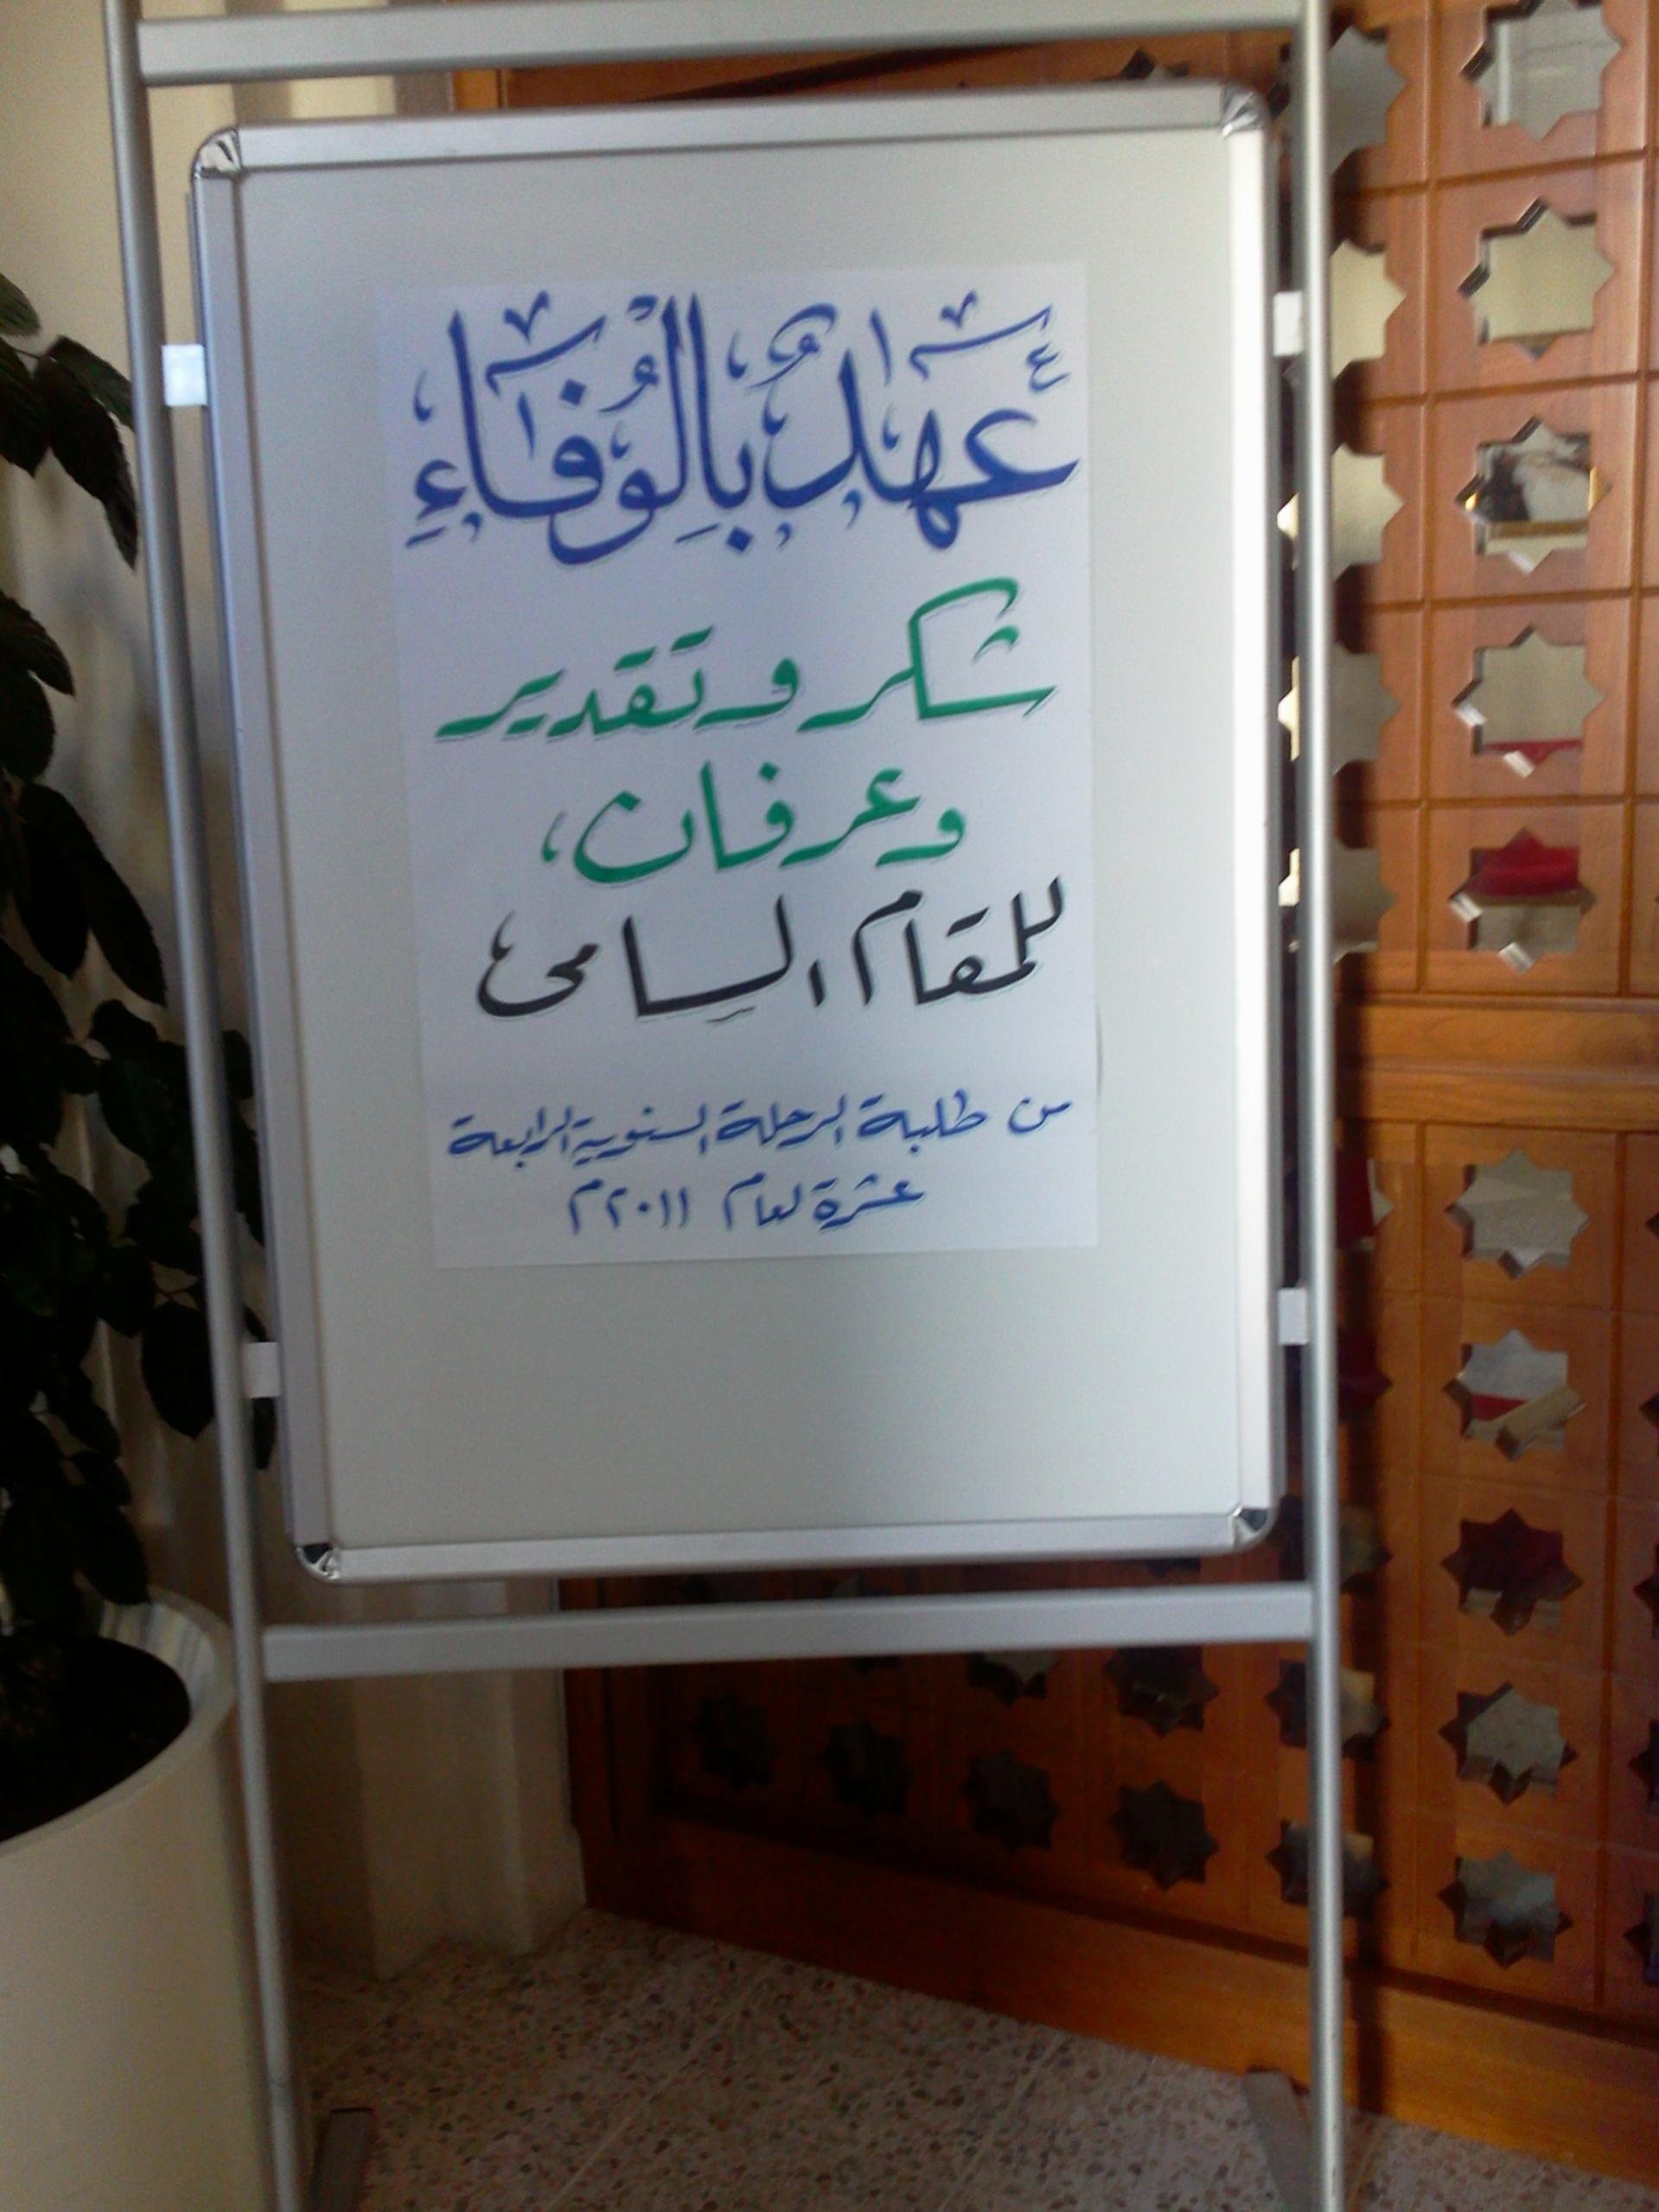 عَهْدٌ بِالْوَفَاءِ
شكر وتقدير
وعرفان،
للمقام السامي
من طلبة الرحلة السنوية الرابعة
عشرة لعام ٢٠١١م